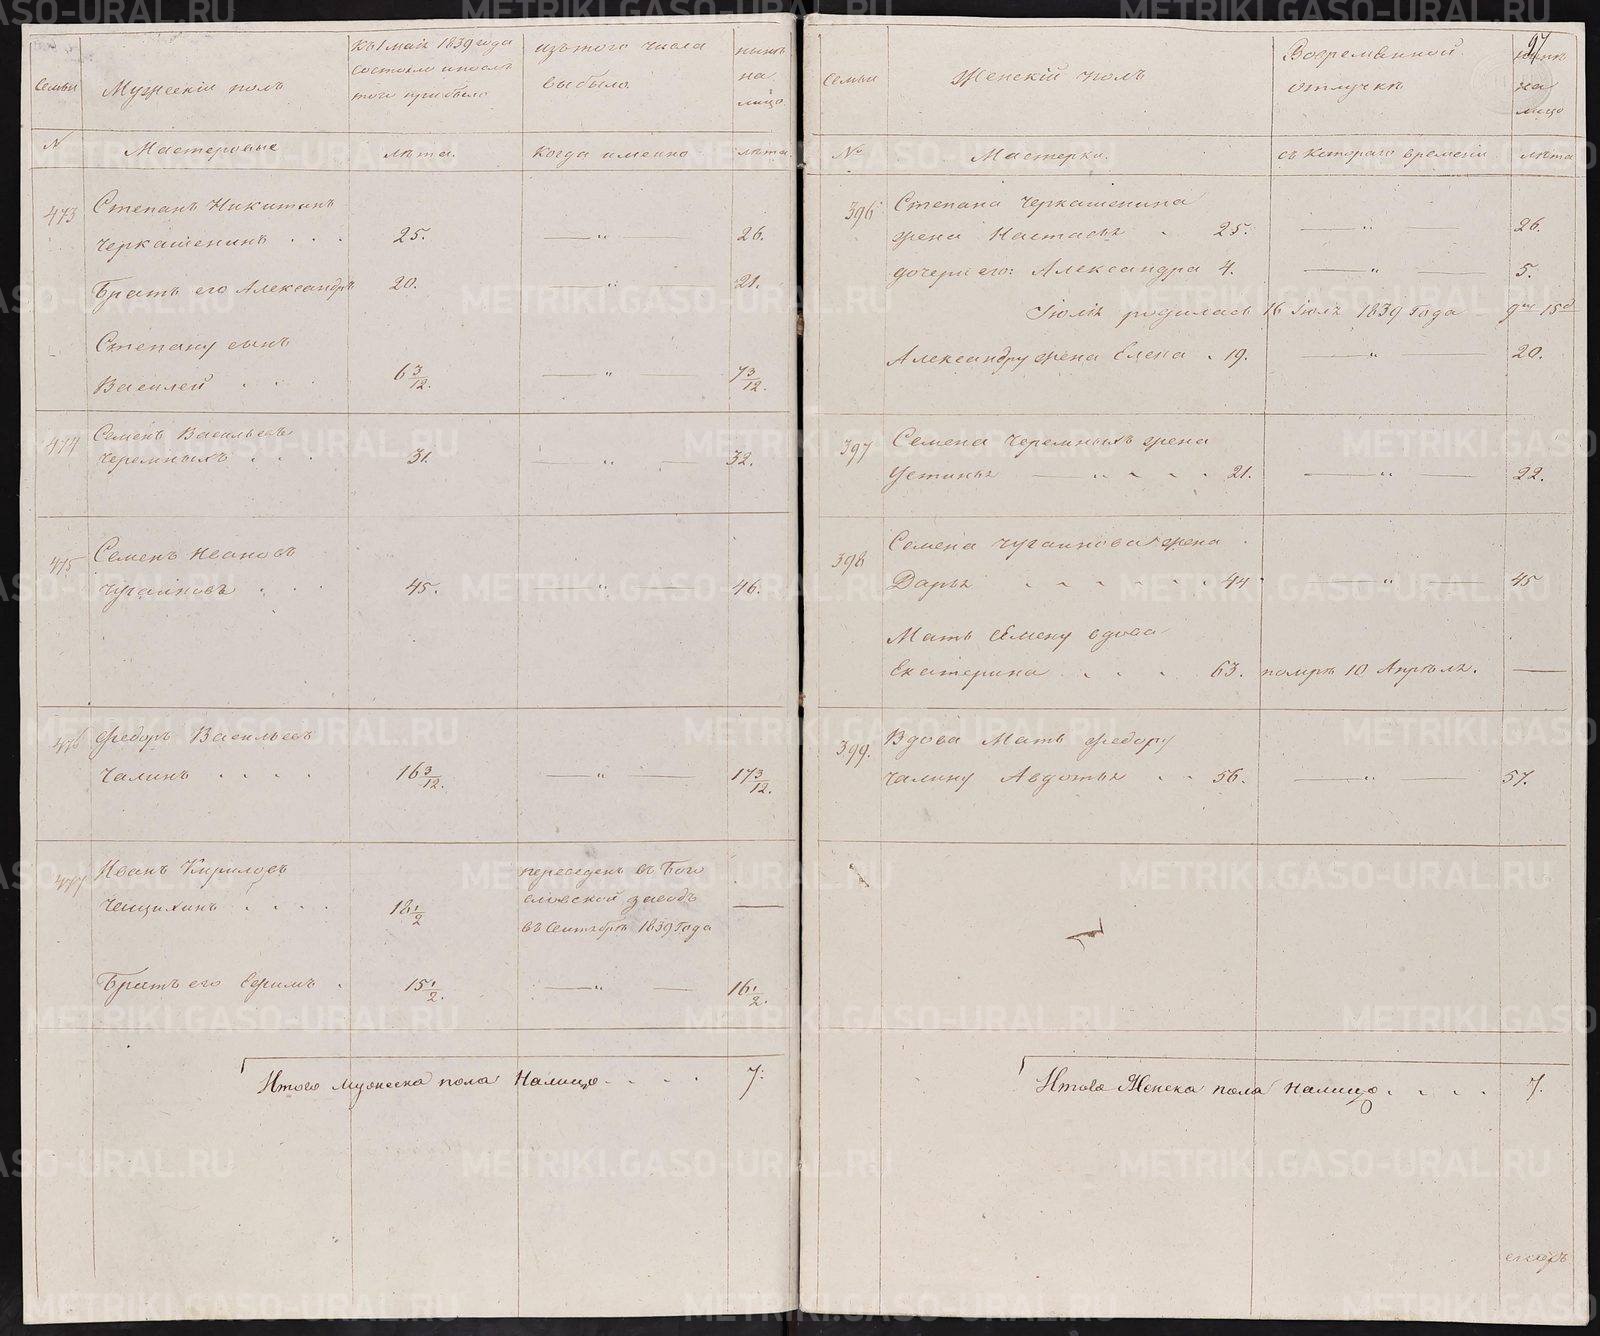 Семьи
Мужескiй полъ
Къ 1 маiя 1839 года
состояло и послѣ
того прибыло
изъ того числа
выбыло
нынѣ
на
лицо
N
Мастеровые
лѣта.
когда именно
лѣта.
473
Степанъ Никитинъ
Черкашенинъ . . . 25. — " — 26.
Братъ его Александръ 20. — " — 21.
Степану сынъ
Василей . . . 6 3/12. — " — 7 3/12.
474
Семенъ Васильевъ
Черемныхъ . . . 31. — " — 32.
475
Семенъ Ивановъ
Чугаиновъ . . . 45. — " — 46.
476
Федоръ Васильевъ
Чалинъ . . . . 16 3/12. — " — 17 3/12.
477
Иванъ Кириловъ
Ченцихинъ . . . . 18 1/2 переведенъ въ Бого
словской заводъ
въ Сентябрѣ 1839 года —
Братъ его Ефимъ . 15 1/2. — " — 16 1/2.
Итого мужеска пола налицо . . . . 7.
97
Семьи
Женскiй полъ
Во временной
отлучкѣ
нынѣ
на
лицо
№
Мастерки.
съ котораго времени
лѣта
396
Степана Черкашенина
жена Настасья . 25. — " — 26.
дочери его: Александра 4. — " — 5.
Iюлiя родилась 16 Iюля 1839 года
Александру жена Елена . 19. — " — 20.
397
Семена Черемныхъ жена
Устинья — " . . . 21. — " — 22.
398
Семена Чугаинова жена
Дарья . . . . . . 44. — " — 45
Мать Семену вдова
Екатерина . . . 63. помрѣ 10 Апрѣля. —
399.
Вдова Мать Федору
Чалину Авдотья . . 56. — " — 57.
Итого Женска пола налицо . . . . 7.
METRIKI.GASO-URAL.RU